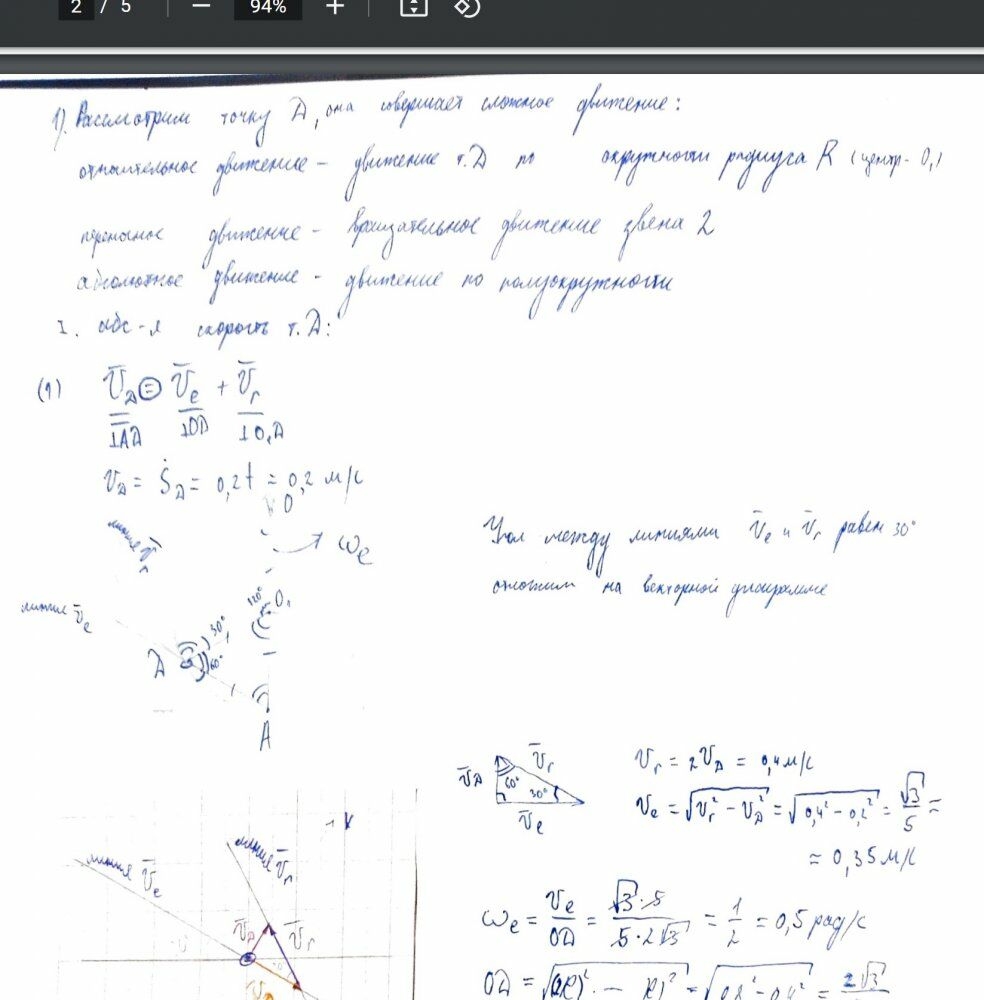 2 / 5 — 94% +
1). Рассмотрим точку D, она совершает сложное движение:
относительное движение – движение т. D по окружности радиуса R (центр - O₁)
переносное движение – вращательное движение звена 2
абсолютное движение – движение по полуокружности
I. абс-я скорость т. D:
(1) V̄D = V̄e + V̄r
⊥AD ⊥OD ⊥O₁D
VD = ṠD = 0,2t = 0,2 м/с
O
линия V̄r
ωe
Угол между линиями V̄e и V̄r равен 30°
отложим на векторной диаграмме
линие V̄e
120°
O₁
30°
D
60°
A
V̄D
V̄r
60°
30°
V̄e
Vr = 2VD = 0,4 м/с
Ve = √(Vr² – VD²) = √(0,4² – 0,2²) = √3/5 =
≈ 0,35 м/с
линия V̄e
линия V̄r
V̄D
V̄r
ωe = Ve/OD = √3·5/5·2√3 = 1/2 = 0,5 рад/с
OD = √(2R)² – R² =